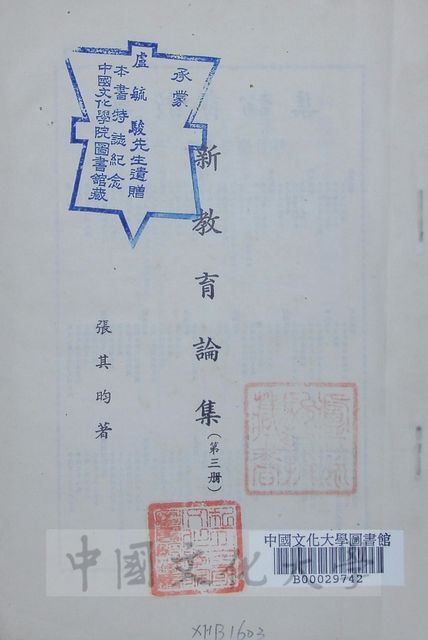 承蒙
盧毓駿先生遺贈
本書特誌紀念
中國文化學院圖書館藏
新教育論集(第三冊)
張其昀著
中國文化大學圖書館
B00029742
中國文化大學
XHB1603